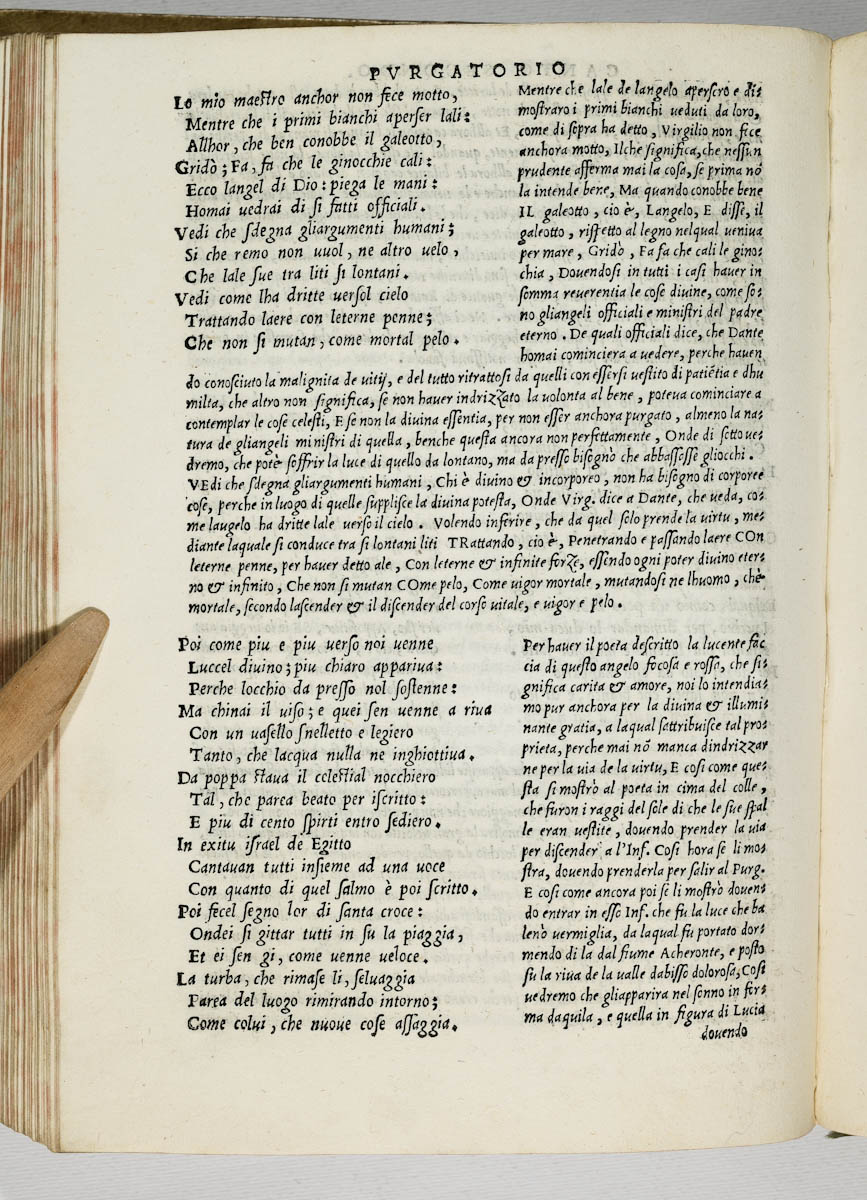 PVRGATORIO
Lo mio maeſtro anchor non fece motto,
Mentre che i primi bianchi aperſer lali:
Allhor, che ben conobbe il galeotto,
Gridò; Fa, fa che le ginocchie cali:
Ecco langel di Dio: piega le mani:
Homai uedrai di ſi fatti officiali.
Vedi che ſdegna gliargumenti humani;
Si che remo non uuol, ne altro uelo,
Che lale ſue tra liti ſi lontani.
Vedi come lha dritte uerſol cielo
Trattando laere con leterne penne;
Che non ſi mutan, come mortal pelo.
Mentre che lale de langelo aperſero e di:
moſtraro i primi bianchi ueduti da loro,
come di ſopra ha detto, Virgilio non fice
anchora motto, Ilche ſignifica, che neſſun
prudente afferma mai la coſa, ſe prima nō
la intende bene, Ma quando conobbe bene
IL galeotto, cio è, Langelo, E diſſe, il
galeotto, riſpetto al legno nelqual ueniua
per mare, Gridò, Fa fa che cali le gino:
chia, Douendoſi in tutti i caſi hauer in
ſomma reuerentia le coſe diuine, come ſo:
no gliangeli officiali e miniſtri del padre
eterno. De quali officiali dice, che Dante
homai cominciera a uedere, perche hauen
do conoſciuto la malignita de uitij, e del tutto ritrattoſi da quelli con eſſerſi ueſtito di patiētia e dhu
milta, che altro non ſignifica, ſe non hauer indrizzato la uolonta al bene, poteua cominciare a
contemplar le coſe celeſti, E ſe non la diuina eſſentia, per non eſſer anchora purgato, almeno la na:
tura de gliangeli miniſtri di quella, benche queſta ancora non perfettamente, Onde di ſotto ue:
dremo, che potè ſoffrir la luce di quello da lontano, ma da preſſo biſognò che abbaſſeſſe gliocchi.
VEdi che ſdegna gliargumenti humani, Chi è diuino & incorporeo, non ha biſogno di corporee
coſe, perche in luogo di quelle ſuppliſce la diuina poteſta, Onde Virg. dice a Dante, che ueda, co:
me laugelo ha dritte lale uerſo il cielo. Volendo inferire, che da quel ſolo prende la uirtu, me:
diante laquale ſi conduce tra ſi lontani liti TRattando, cio è, Penetrando e paſſando laere COn
leterne penne, per hauer detto ale, Con leterne & infinite forze, eſſendo ogni poter diuino eter:
no & infinito, Che non ſi mutan COme pelo, Come uigor mortale, mutandoſi ne lhuomo, chè
mortale, ſecondo laſcender & il diſcender del corſo uitale, e uigor e pelo.
Poi come piu e piu uerſo noi uenne
Luccel diuino; piu chiaro appariua:
Perche locchio da preſſo nol ſoſtenne:
Ma chinai il uiſo; e quei ſen uenne a riua
Con un uaſello ſnelletto e legiero
Tanto, che lacqua nulla ne inghiottiua.
Da poppa ſtaua il celeſtial nocchiero
Tal, che parea beato per iſcritto:
E piu di cento ſpirti entro ſediero.
In exitu iſrael de Egitto
Cantauan tutti inſieme ad una uoce
Con quanto di quel ſalmo è poi ſcritto.
Poi fecel ſegno lor di ſanta croce:
Ondei ſi gittar tutti in ſu la piaggia,
Et ei ſen gi, come uenne ueloce.
La turba, che rimaſe li, ſeluaggia
Parea del luogo rimirando intorno;
Come colui, che nuoue coſe aſſaggia.
Per hauer il poeta deſcritto la lucente fac
cia di queſto angelo focoſa e roſſa, che ſi:
gnifica carita & amore, noi lo intendia:
mo pur anchora per la diuina & illumi:
nante gratia, a laqual ſattribuiſce tal pro:
prieta, perche mai nō manca dindrizzar
ne per la uia de la uirtu, E coſi come que:
ſta ſi moſtrò al poeta in cima del colle,
che furon i raggi del ſole di che le ſue ſpal
le eran ueſtite, douendo prender la uia
per diſcender a l'Inf. Coſi hora ſe li mo:
ſtra, douendo prenderla per ſalir al Purg.
E coſi come ancora poi ſe li moſtrò douen:
do entrar in eſſo Inf. che fu la luce che ba
lenò uermiglia, da laqual fu portato dor:
mendo di la dal fiume Acheronte, e poſto
ſu la riua de la ualle dabiſſo doloroſa, Coſi
uedremo che gliapparira nel ſonno in for:
ma daquila, e quella in figura di Lucia
douendo